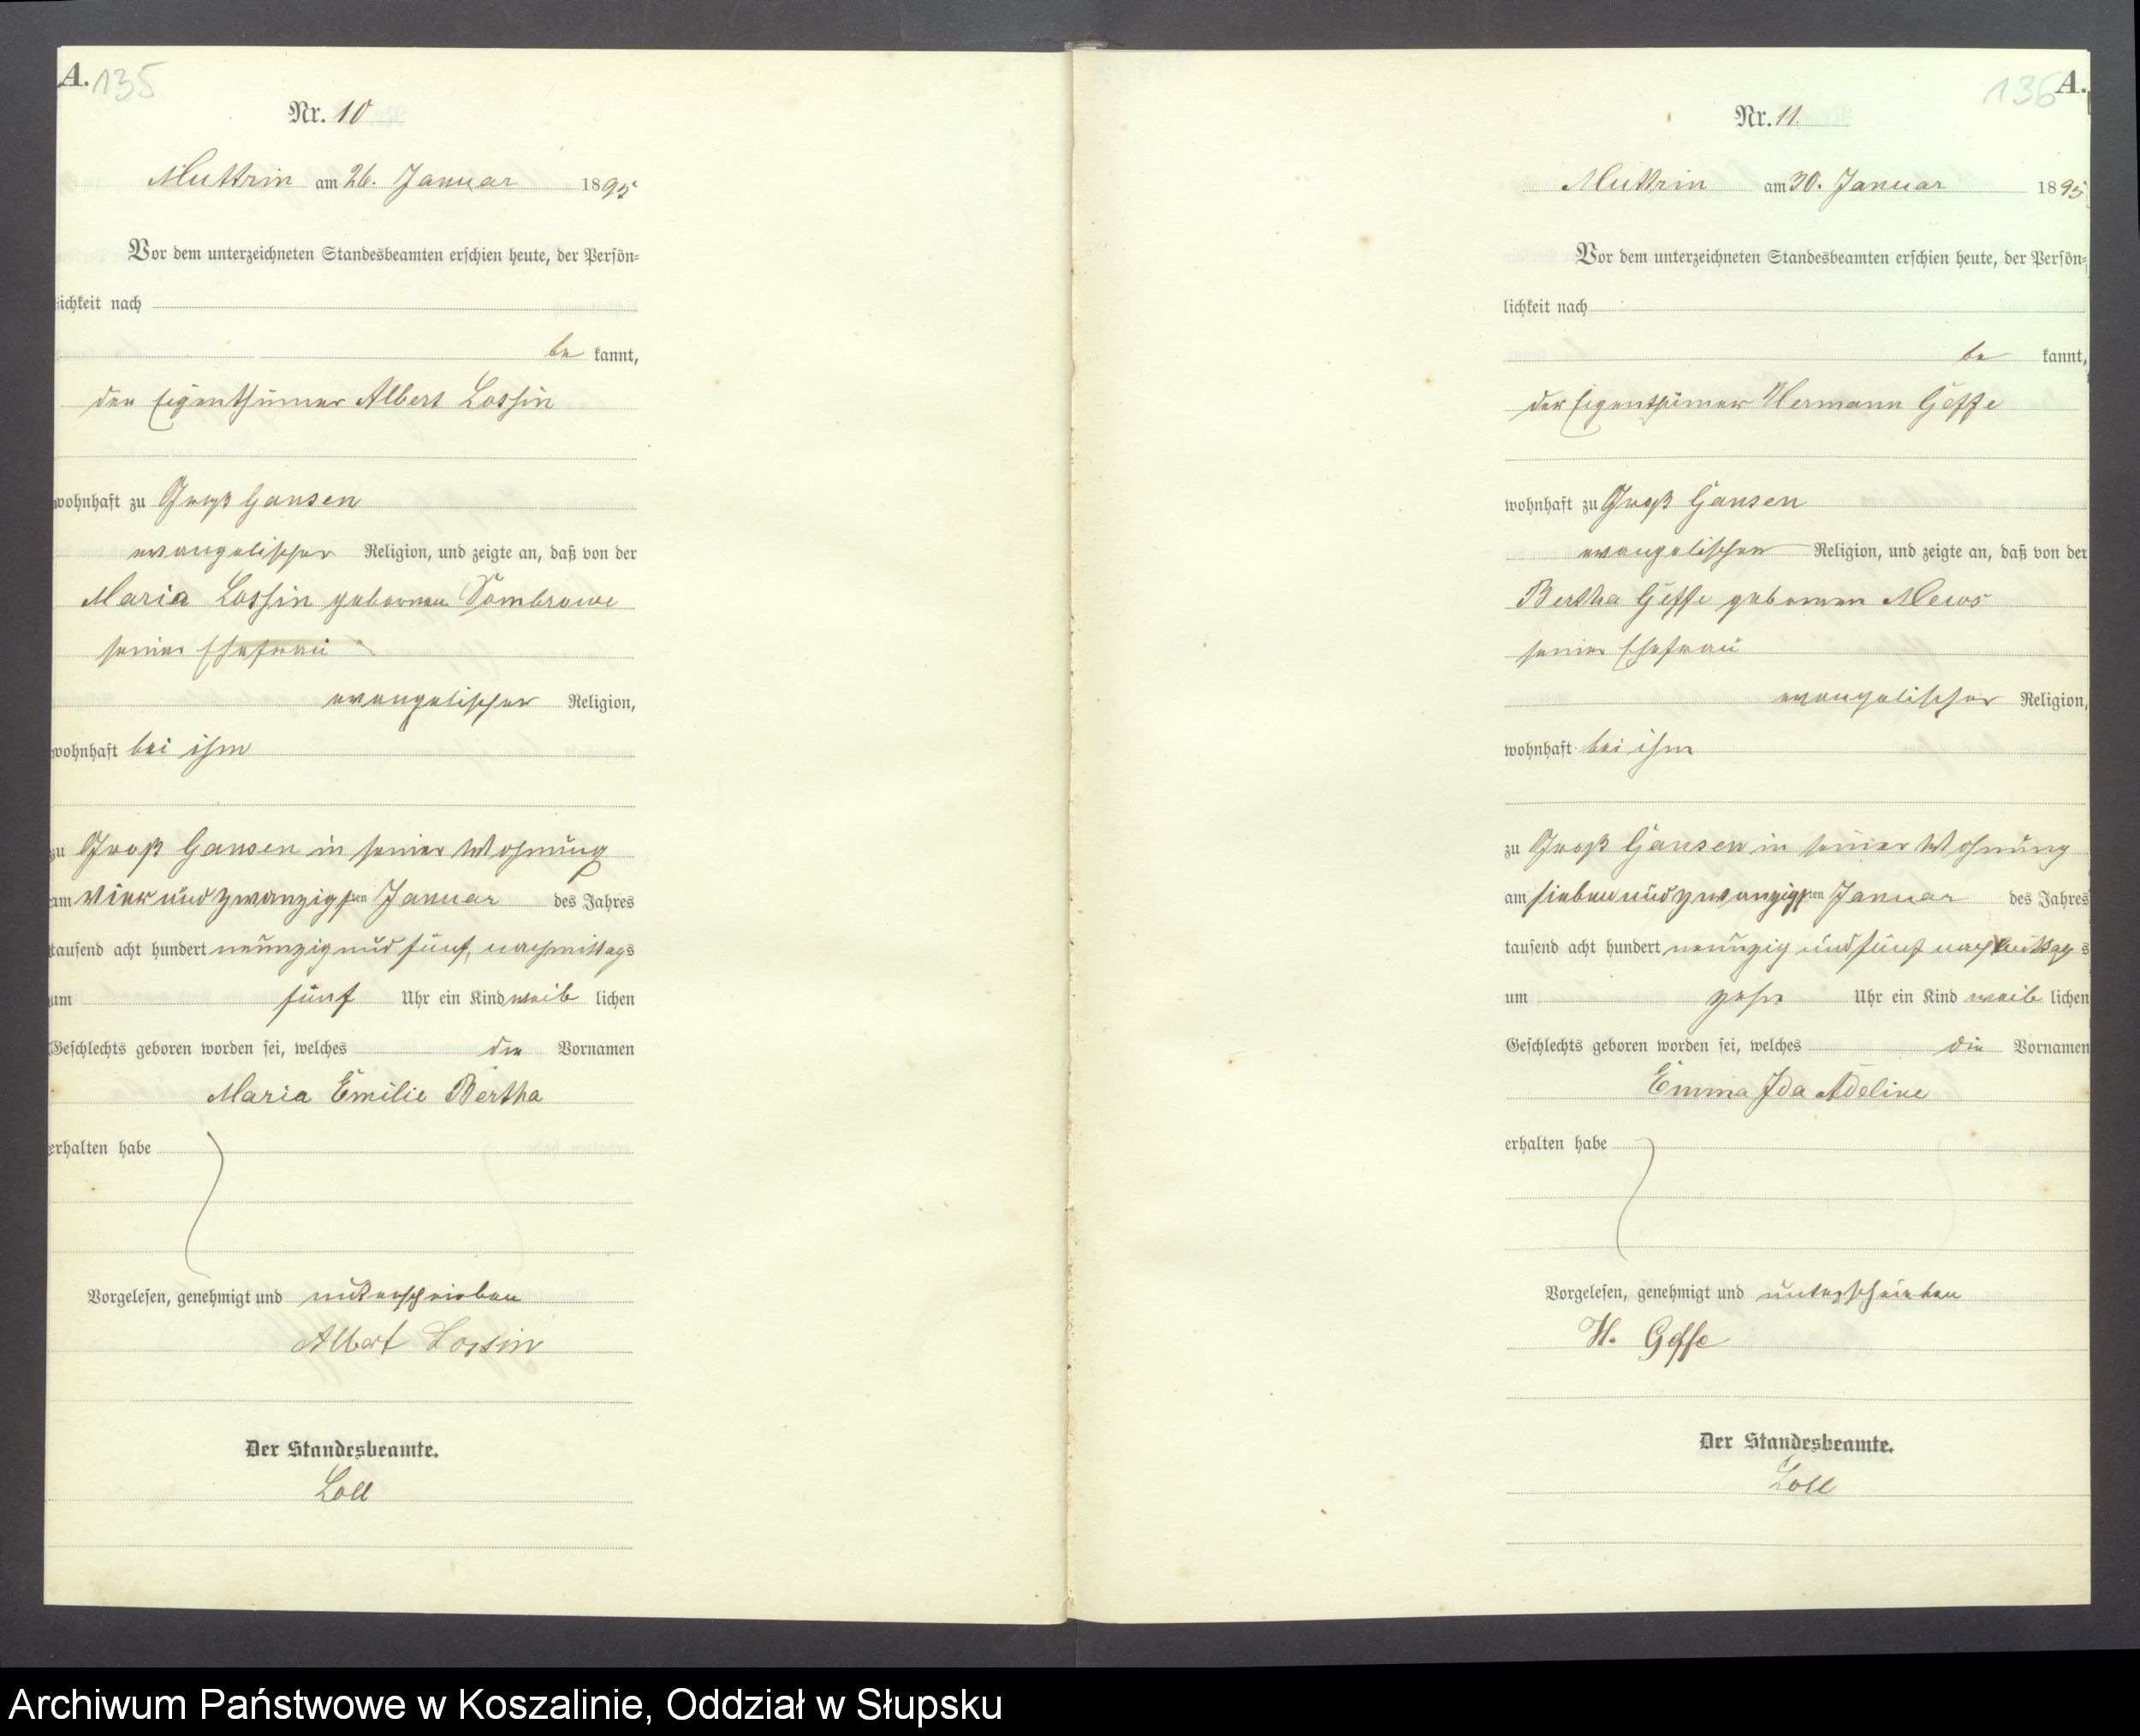 A. 135
Nr. 10
Muttrin am 26. Januar 1895
Vor dem unterzeichneten Standesbeamten erschien heute, der Persön-
lichkeit nach
be kannt,
der Eigenthümer Albert Lossin
wohnhaft zu Groß Gansen
evangelischer Religion, und zeigte an, daß von der
Maria Lossin geborenen Dombrowe
seiner Ehefrau
evangelischer Religion,
wohnhaft bei ihm
zu Groß Gansen in seiner Wohnung
am vier und zwanzigsten Januar des Jahres
tausend acht hundert neunzig und fünf, nachmittags
um fünf Uhr ein Kind weib lichen
Geschlechts geboren worden sei, welches die Vornamen
Maria Emilie Bertha
erhalten habe
Vorgelesen, genehmigt und unterschrieben
Albert Lossin
Der Standesbeamte.
Loll
136 A.
Nr. 11.
Muttrin am 30. Januar 1895
Vor dem unterzeichneten Standesbeamten erschien heute, der Persön-
lichkeit nach
be kannt,
der Eigenthümer Hermann Geffe
wohnhaft zu Groß Gansen
evangelischer Religion, und zeigte an, daß von der
Bertha Geffe geborenen Mews
seiner Ehefrau
evangelischer Religion,
wohnhaft bei ihm
zu Groß Gansen in seiner Wohnung
am sieben und zwanzigsten Januar des Jahres
tausend acht hundert neunzig und fünf nachmittags
um zehn Uhr ein Kind weib lichen
Geschlechts geboren worden sei, welches die Vornamen
Emma Ida Adeline
erhalten habe
Vorgelesen, genehmigt und unterschrieben
H. Geffe
Der Standesbeamte.
Loll
Archiwum Państwowe w Koszalinie, Oddział w Słupsku